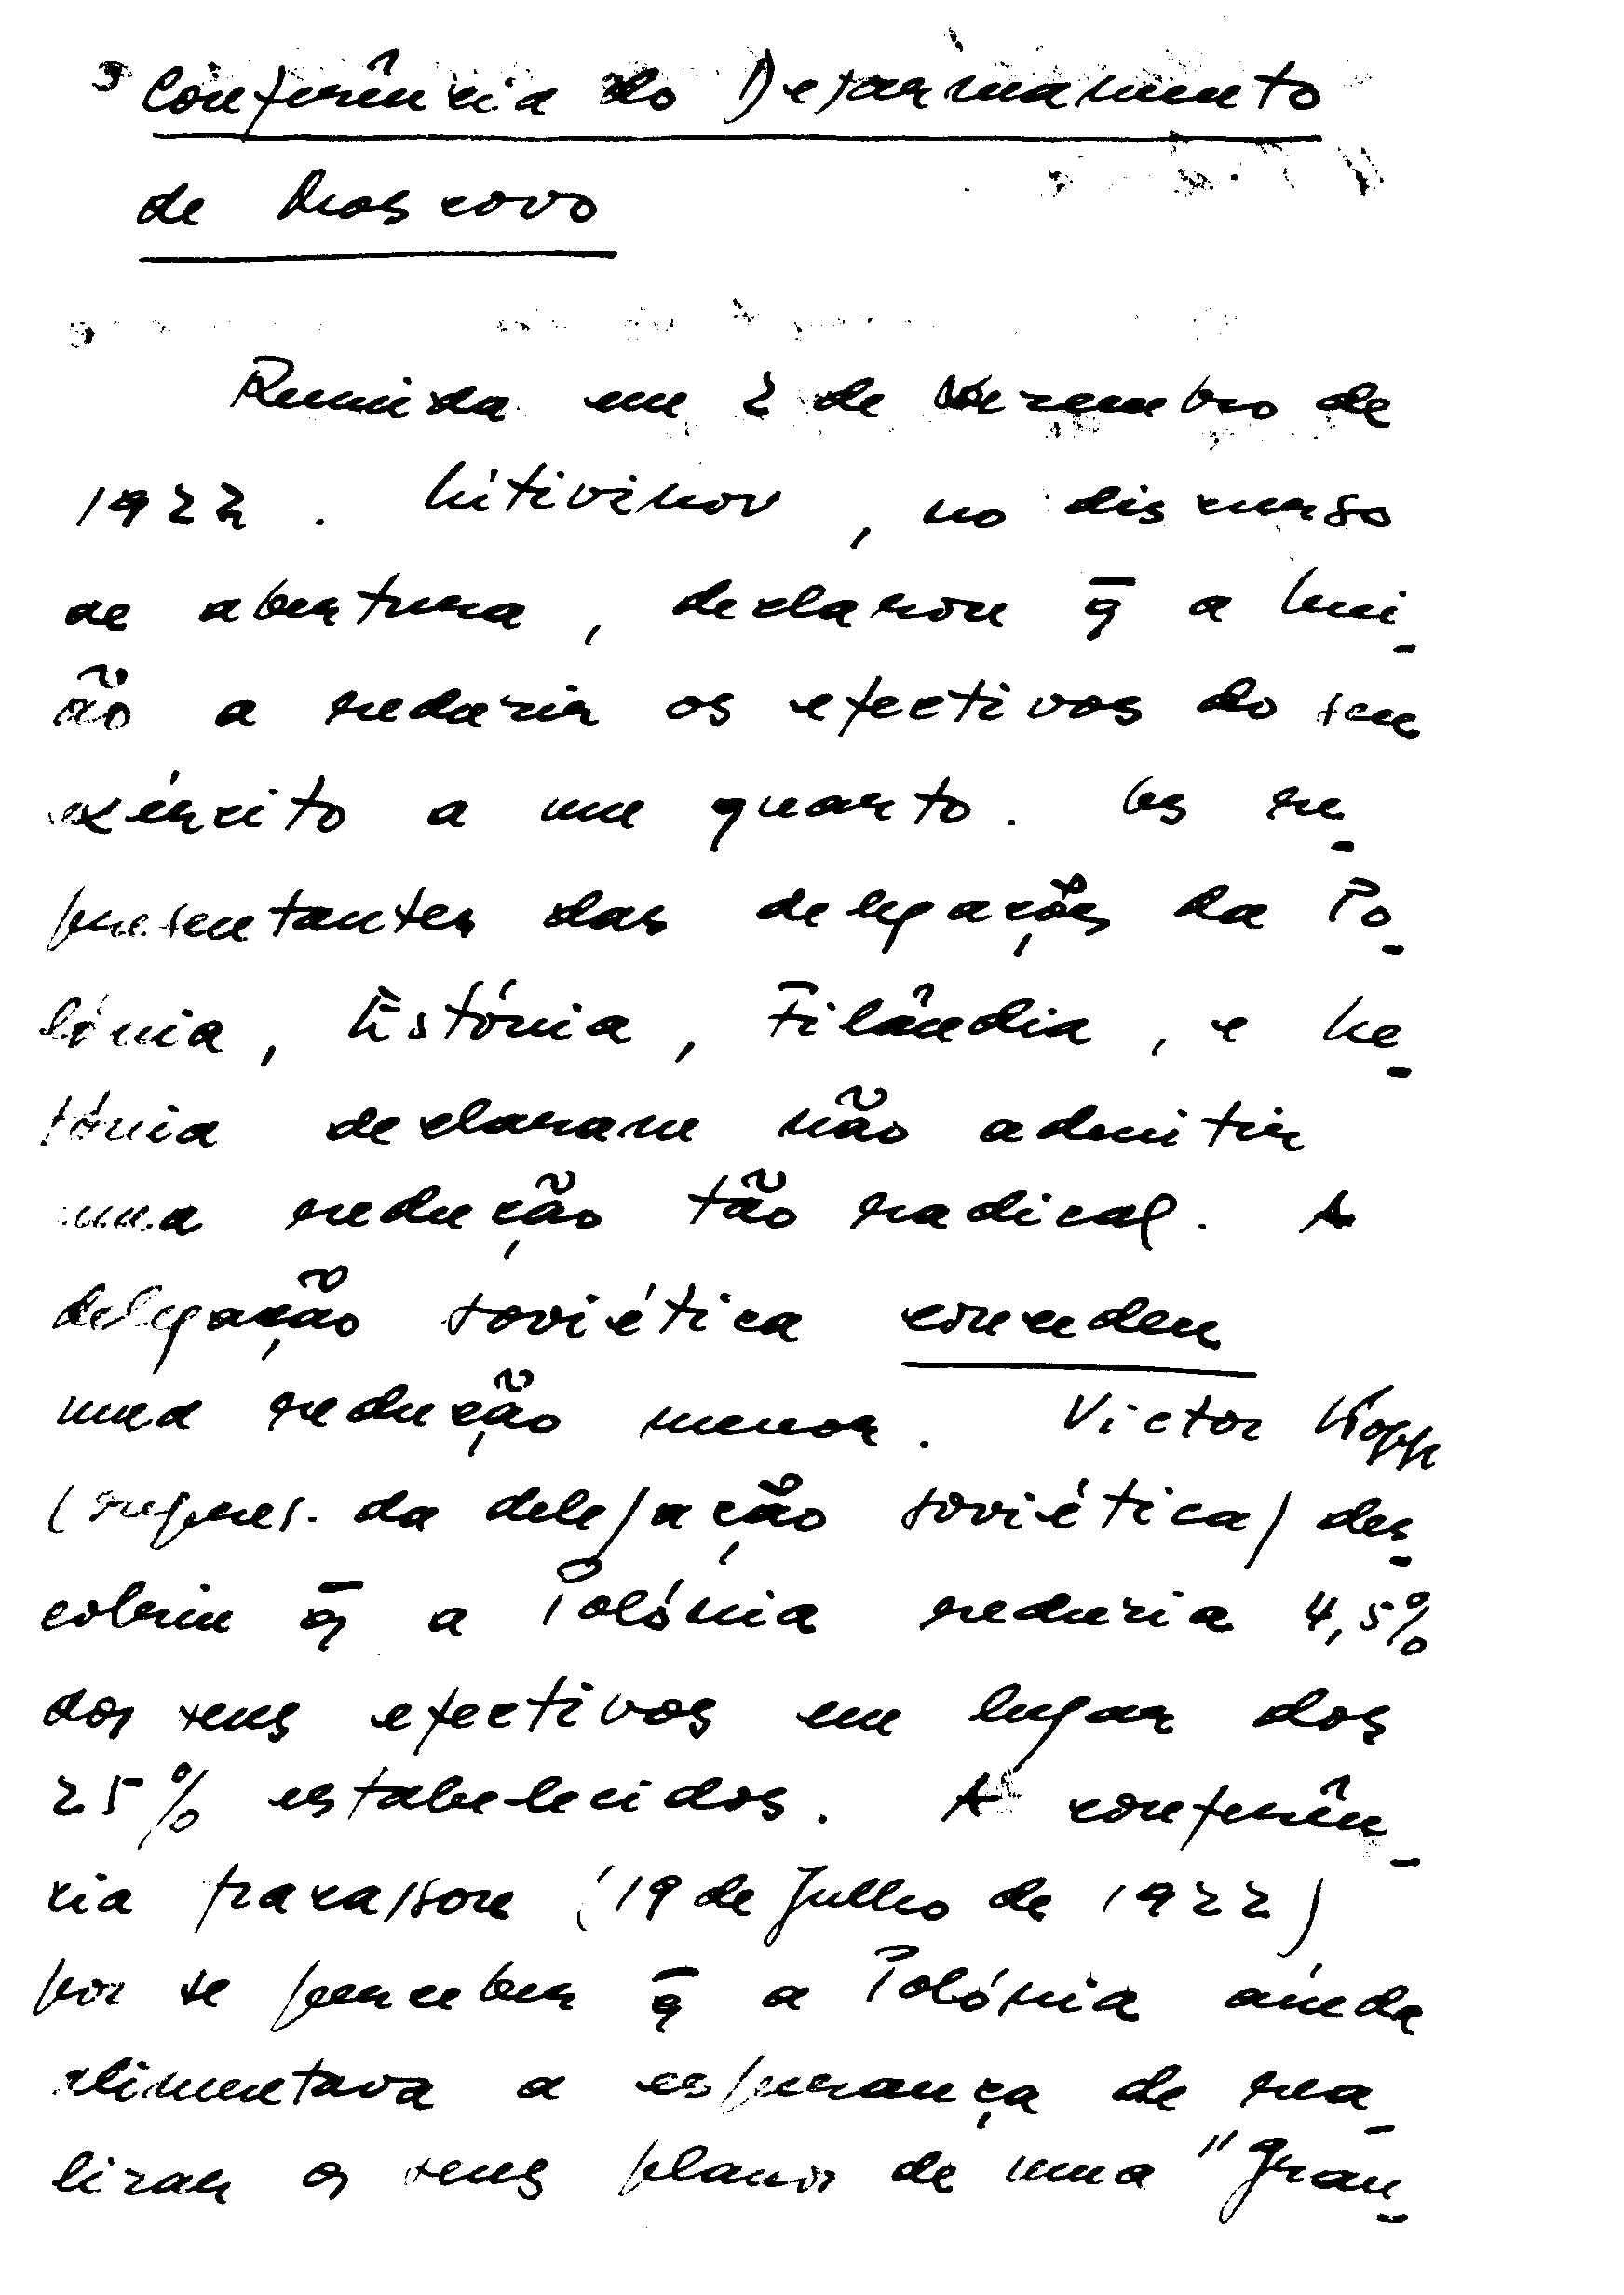 Conferência do Desarmamento
de Moscovo
Reunida em 2 de Dezembro de
1922. Litivinov, no discurso
de abertura, declarou q̄ a Uni-
ão a reduzir os efectivos do seu
exército a um quarto. Os re-
presentantes das delegações da Po-
lónia, Estónia, Filândia, e Le-
tónia declaram não admitir
uma redução tão radical. A
delegação soviética concedeu
uma redução menor. Victor Kopp
(repres. da delegação soviética) des-
cobriu q̄ a Polónia reduzia 4,5%
dos seus efectivos em lugar dos
25% estabelecidos. A conferên-
cia fracassou (19 de Julho de 1922)
por se perceber q̄ a Polónia ainda
alimentava a esperança de rea-
lizar os seus planos de uma "Gran-